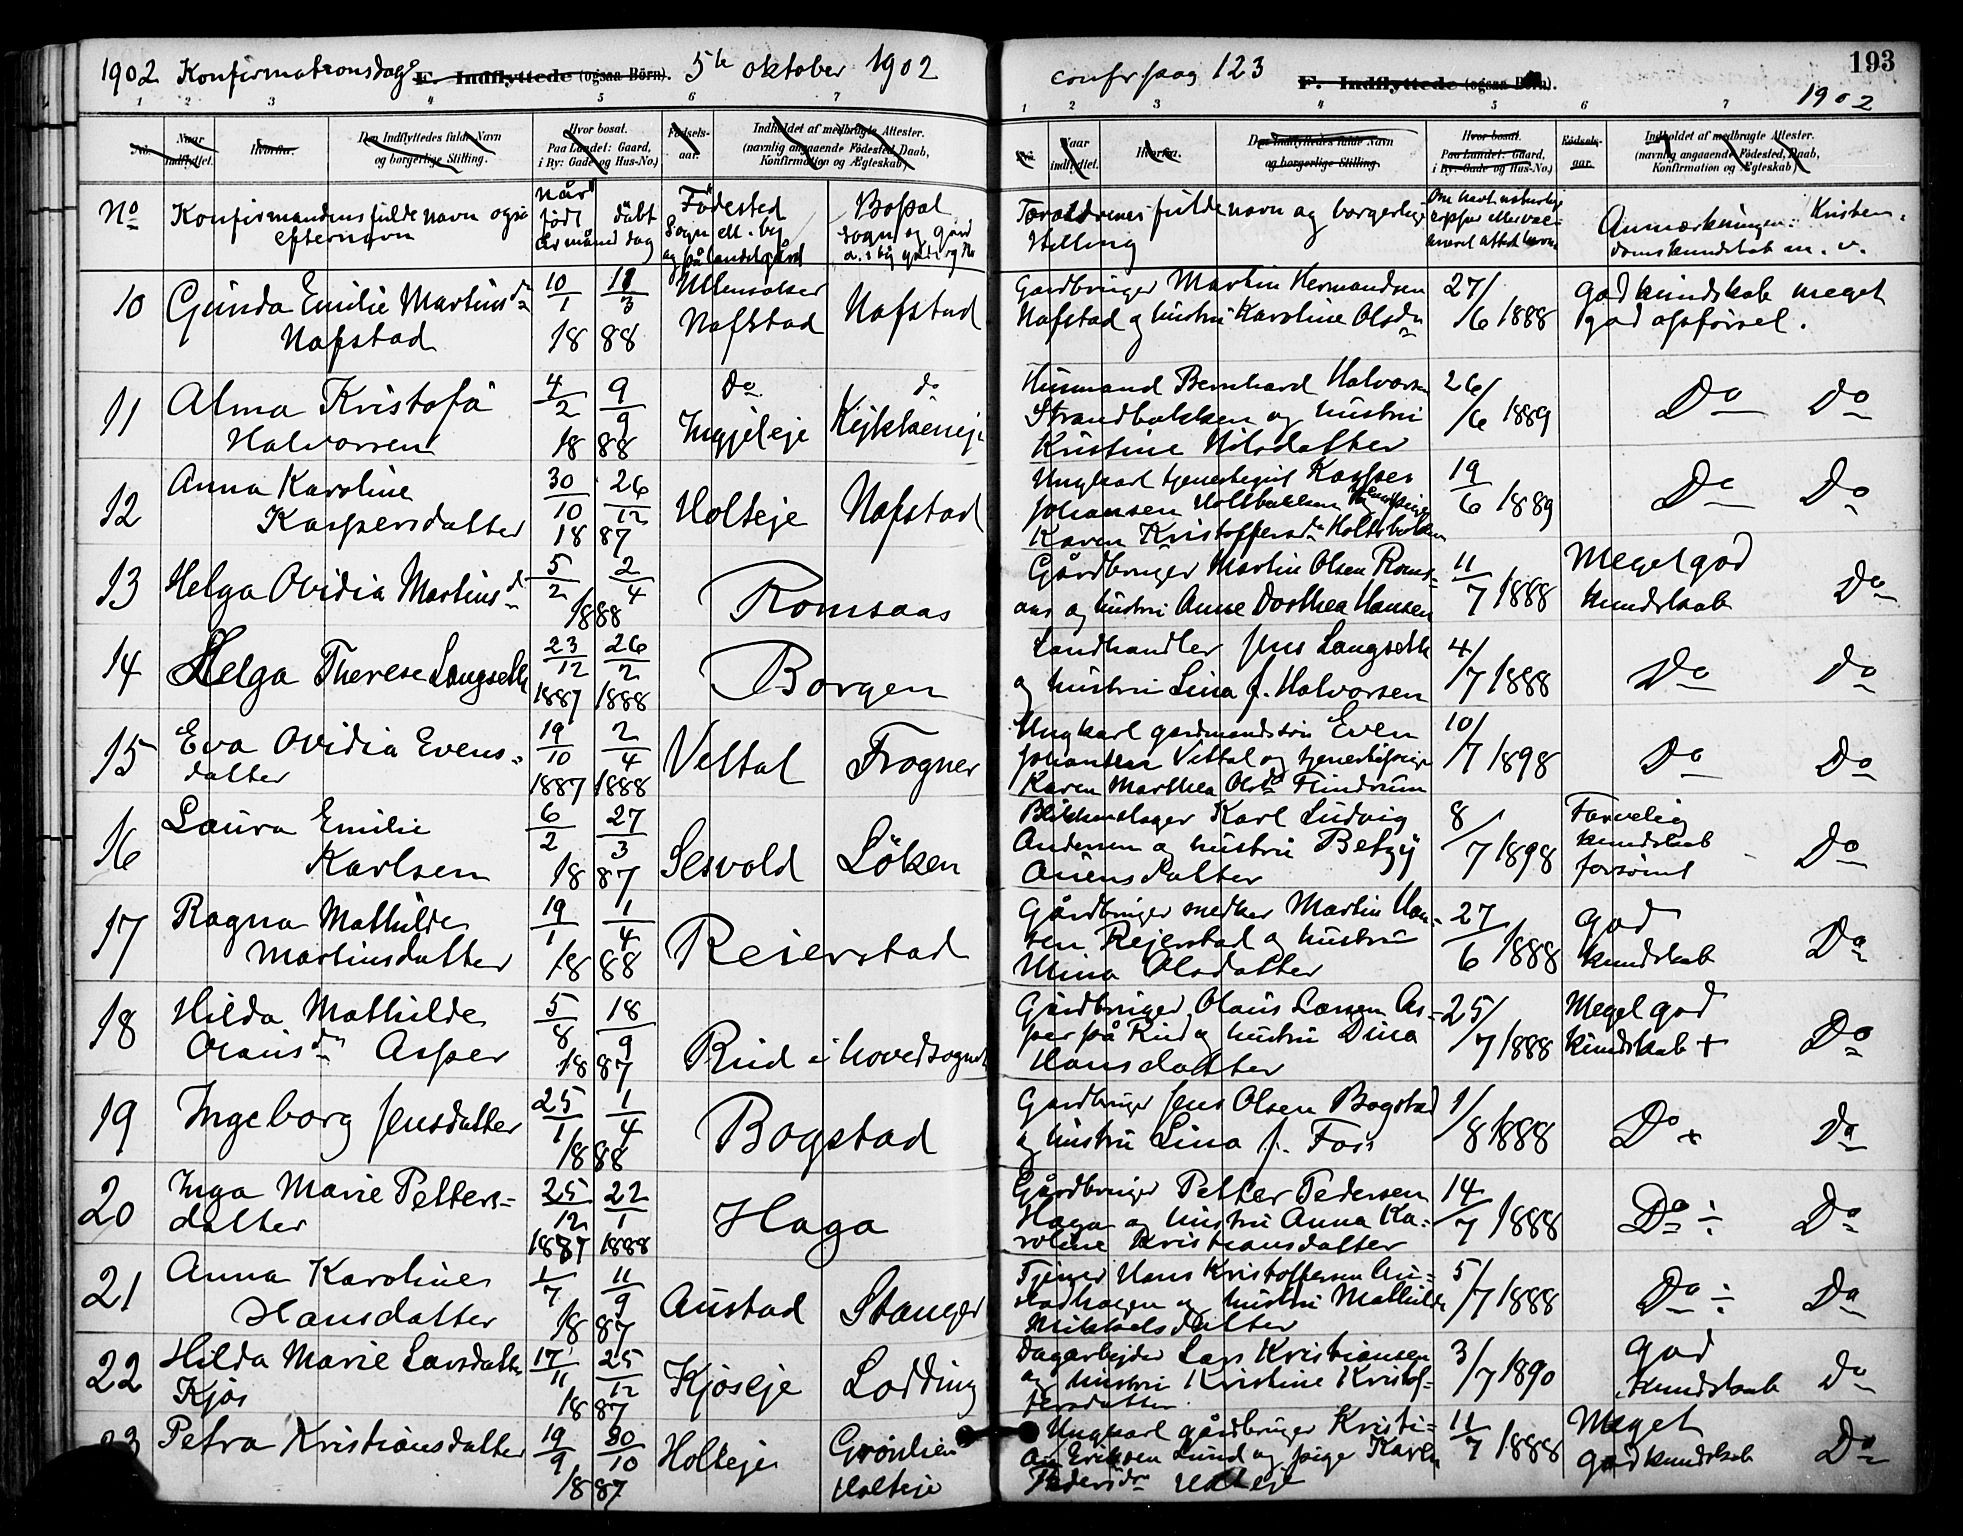 1902 Konfirmationsdag 5te oktober 1902
F. Indflyttede (ogsaa Børn).
confr pag 123
F. Indflyttede (ogsaa Børn).
193
1902
1 2 3 4 5 6 7
1 2 3 4 5 6 7
No. Naar indflyttet. Hvorfra. Den Indflyttedes fulde Navn og borgerlige Stilling. Hvor bosat. Paa Landet: Gaard, i By: Gade og Hus-No.) Fødsels-aar. Indholdet af medbragte Attester. (navnlig angaaende Fødested, Daab, Konfirmation og Ægteskab)
No. Naar indflyttet. Hvorfra. Den Indflyttedes fulde Navn og borgerlige Stilling. Hvor bosat. Paa Landet: Gaard, i By: Gade og Hus-No.) Fødsels-aar. Indholdet af medbragte Attester. (navnlig angaaende Fødested, Daab, Konfirmation og Ægteskab)
No Konfirmandens fulde navn også efternavn
Når født døbt år måned dag
Födested Sogn ell. by og på landet gård
Bopæl sogn og gård
Forældrenes fulde navn og borgerlige stilling
Anmærkninger: Kristendomskundskab m. v.
10 Gunda Emilie Martinsdr
Nafstad
10/1 18/3
18 88
Ullensaker
Nafstad
Nafstad
Gardbruger Martin Hermandsen
Nafstad og hustru Karoline Olsdr
27/6 1888
god kundskab meget
god opförsel.
11 Alma Kristofa
Halvorsen
4/2 9/9
18 88
Do
Ingjeleje
do
Husmand Bernhard Halvorsen
Strandbakken og hustru
Kristine Nilsdatter
26/6 1889
Do Do
12 Anna Karoline
Kaspersdatter
30/10 26/12
18 87
Holteje Nafstad
Ungkarl tjenestegut Kasper
Johansen Holtbakken
Karen Kristoffersdr Holtebakken
19/6 1889
Do Do
13 Helga Ovidia Martinsd
5/2 2/4
1888
Romsaas
Gårdbruger Martin Olsen Roms-
aas og hustru Anne Dorthea Hansen
11/7 1888
Meget god
kundskab
Do
14 Helga Therese Langseth
23/12 26/2
1887 1888
Borgen
Landhandler Jens Langseth
og hustru Lina f. Halvorsen
4/7 1888
Do Do
15 Eva Ovidia Evens-
datter
19/10 2/4
1887 1888
Veltal Frogner
Ungkarl gardmandssön Even
Johansen Veltal og tjenestepige
Karen Marthea Olsdr Flindrum
10/7 1898
Do Do
16 Laura Emilie
Karlsen
6/2 27/3
18 87
Sesvold Löken
Blikkenslager Karl Ludvig
Andersen og hustru Betzy
8/7 1898
Farvelig
kundskab
forsömt
Do
17 Ragna Mathilde
Martinsdatter
19/1 1/4
18 88
Reierstad
Gårdbruger Martin Han-
sen Rejerstad og hustru
Mina Olsdatter
27/6 1888
god
kundskab
Do
18 Hilda Mathilde
Olausdr Asper
5/8 18/9
18 87
Rud i hovedsognet
Gårdbruger Olaus Larsen As-
per på Rud og hustru Dina
Hansdatter
25/7 1888
Meget god
kundskab +
Do
19 Ingeborg Jensdatter
25/1 1/4
18 88
Bogstad
Gardbruger Jens Olsen Bogstad
og hustru Lina f. Foss
1/8 1888
Do + Do
20 Inga Marie Petters-
datter
25/12 22/1
1887 1888
Haga
Gårdbruger Petter Pedersen
Haga og hustru Anna Ka-
roline Kristiansdatter
14/7 1888
Do ÷ Do
21 Anna Karoline
Hansdatter
1/7 11/9
18 87
Austad Stanger
Tjener Hans Kristoffersen Au-
stadhagen og hustru Mathilde
Mikkelsdatter
5/7 1888
Do ÷ Do
22 Hilda Marie Larsdatter
Kjos
17/11 25/12
18 87
Kjoseje Lodding
Dagarbejder Lars Kristiansen
og hustru Kristine Kristof-
fersdatter
3/7 1890
god
kundskab
Do
23 Petra Kristiansdatter
19/9 30/10
18 87
Holteje
Grönlien
Holteje
Ungkarl gårdbruger Kristi-
an Eriksen Lund og pige Karen
Pedersdr Holteje
11/7 1888
Meget
god kundskab
Do